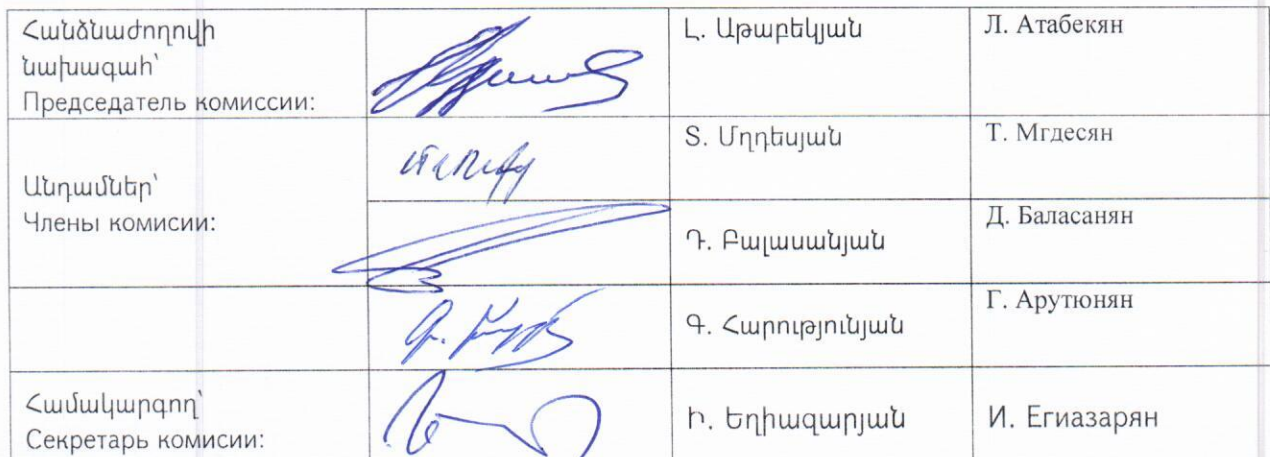 Հանձնաժողովի
նախագահ՝
Председатель комиссии:
Լ. Աթաբեկյան
Л. Атабекян
Անդամներ՝
Члены комисии:
Տ. Մղդեսյան
Т. Мгдесян
Դ. Բալասանյան
Д. Баласанян
Գ. Հարությունյան
Г. Арутюнян
Համակարգող՝
Секретарь комисии:
Ի. Եղիազարյան
И. Егиазарян